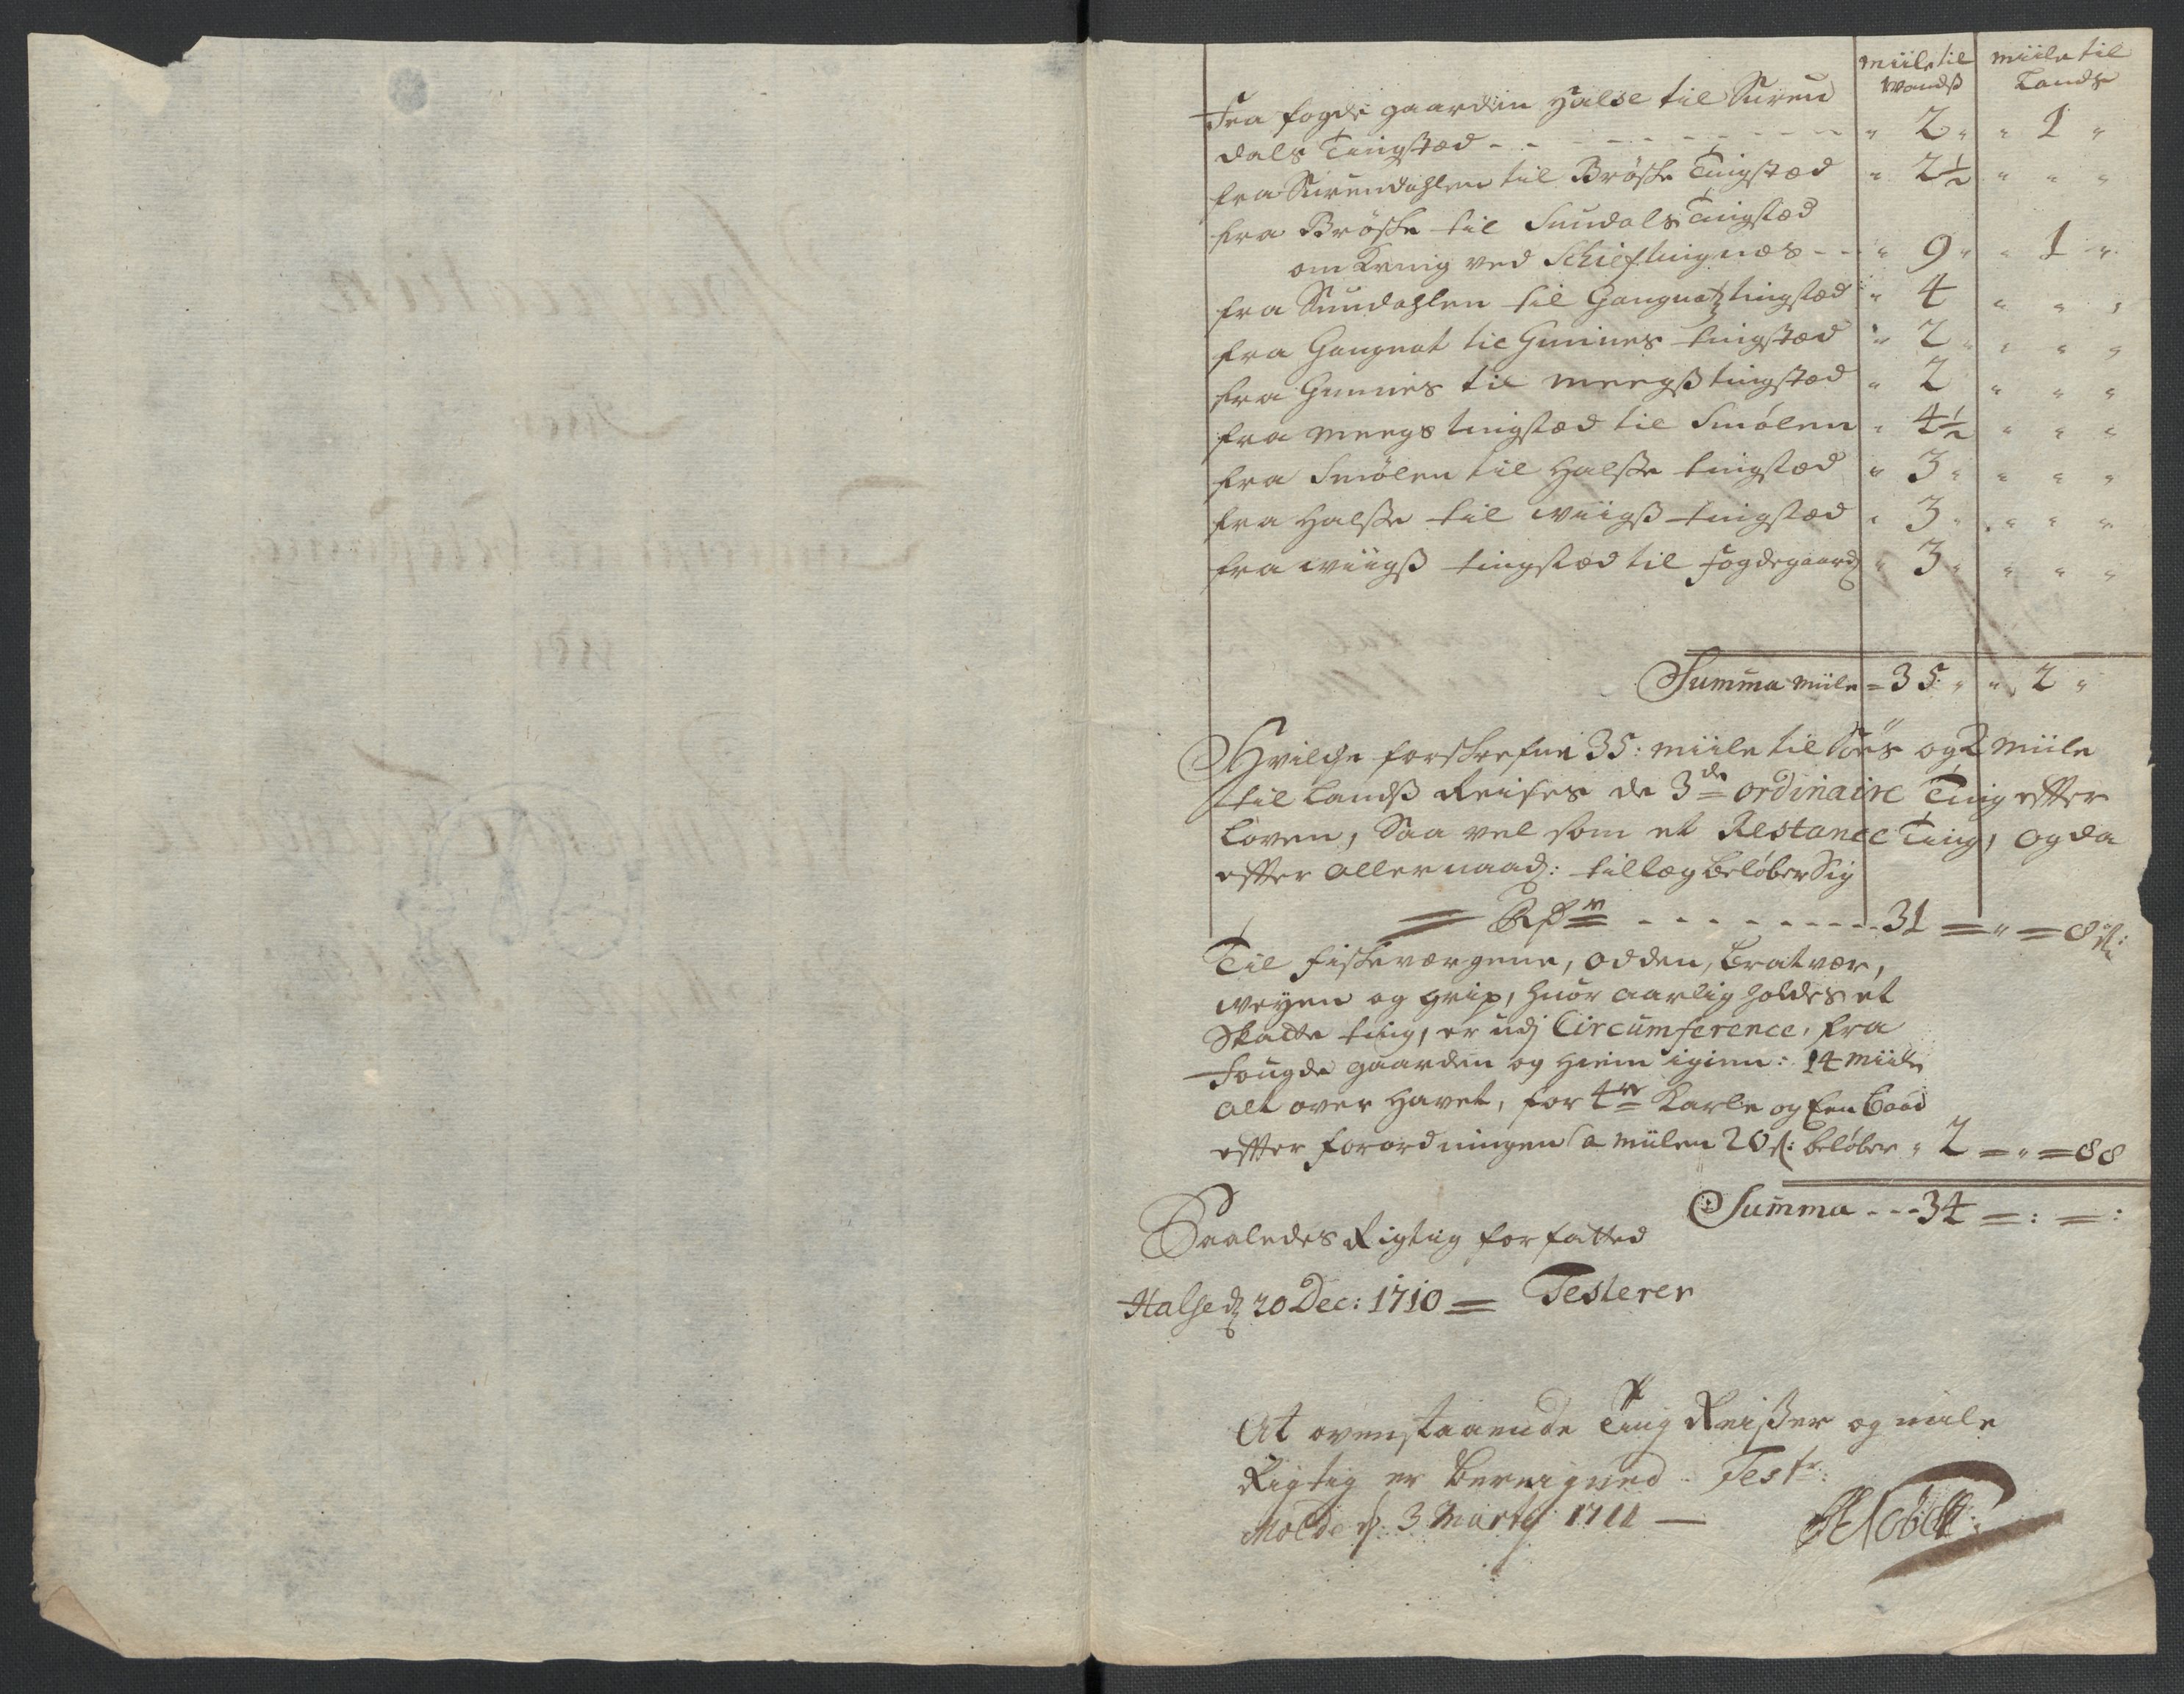 miile til Wandß miile til Lands
Fra fogde gaarden Halse til Suren
dals Tingstæd - - - - - - - " 2 " " 1 "
fra Surendahlen til Brøske Tingstæd " 2½ " " "
fra Brøske til Sundals Tingstæd
omkring ved Schieftingnæs - - " 9 " " 1 "
fra Sundahlen til Gangnatz tingstæd " 4 " " "
fra Gangnat til Gimnes tingstæd " 2 " " " "
fra Gimnes til Meegß tingstæd " 2 " " "
fra Meegs tingstæd til Smølen " 4½ " " "
fra Smølen til Halsse tingstæd " 3 " " " "
fra Halsse til Wiigß tingstæd " 3 " " " "
fra Wiigß tingstæd til fogdegaard " 3 " " " "
Summa miile = 35 " " 2 "
Hvilche forskrefne 35: miile til Søes og 2 miile
til Landß Reises de 3de ordinaire Ting efter
Loven, Saa vel som et Restance Ting, og da
efter allernaad: tillæg beløber Sig
= Rdr - - - - - - - - - 31 = " = 8 ß:
Til fiskeværgene, Odden, Bratvær,
Weyen og Grip, huor aarlig holdes et
Skatte ting, er udj Circumference, fra
Fougde gaarden og hiem igien: 14 miile
alt over Havet, for 4re Karle og Een Baad
efter forordningen a miilen 20 ß: beløber " 2 = " = 88
Summa - - - 34 = : = :
Saaledes Rigtig forfatted
Halse d 20 Dec: 1710 = Testerer
At ovenstaaende Ting Reißer og mile
Rigtig er bereigned Testr:
Molde d: 3 Marty 1711 —